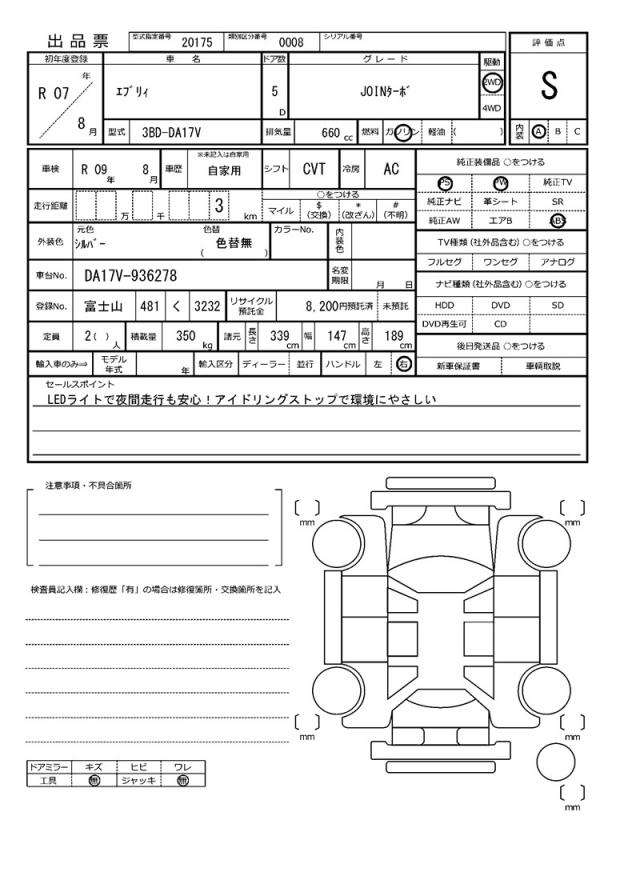 出品票 型式指定番号 20175 類別区分番号 0008 シリアル番号
初年度登録 車名 ドア数 グレード 駆動 評価点
R 07 年 8 月 ｴﾌﾞﾘｨ 5 D JOINﾀｰﾎﾞ 2WD 4WD S
型式 3BD-DA17V 排気量 660 cc 燃料 ガソリン 軽油 ( ) 内装 A B C
車検 R 09 年 8 月 車歴 ※未記入は自家用 自家用 シフト CVT 冷房 AC 純正装備品 ○をつける
PS PW 純正TV
走行距離 万 千 3 km ○をつける 純正ナビ 革シート SR
マイル $(交換) *(改ざん) #(不明) 純正AW エアB ABS
外装色 元色 ｼﾙﾊﾞｰ 色替 ( 色替無 ) カラーNo. 内装色 TV種類 (社外品含む) ○をつける
フルセグ ワンセグ アナログ
車台No. DA17V-936278 名変期限 月 日 ナビ種類 (社外品含む) ○をつける
登録No. 富士山 481 く 3232 リサイクル預託金 8,200円預託済 未預託 HDD DVD SD
DVD再生可 CD
定員 2( ) 人 積載量 350 kg 諸元 長さ 339 cm 幅 147 cm 高さ 189 cm 後日発送品 ○をつける
輸入車のみ⇒ モデル年式 年 輸入区分 ディーラー 並行 ハンドル 左 右 新車保証書 車輌取説
セールスポイント
LEDライトで夜間走行も安心！アイドリングストップで環境にやさしい
注意事項・不具合箇所
mm mm
検査員記入欄：修復歴「有」の場合は修復箇所・交換箇所を記入
mm mm
ドアミラー キズ ヒビ ワレ
工具 無 ジャッキ 無
mm